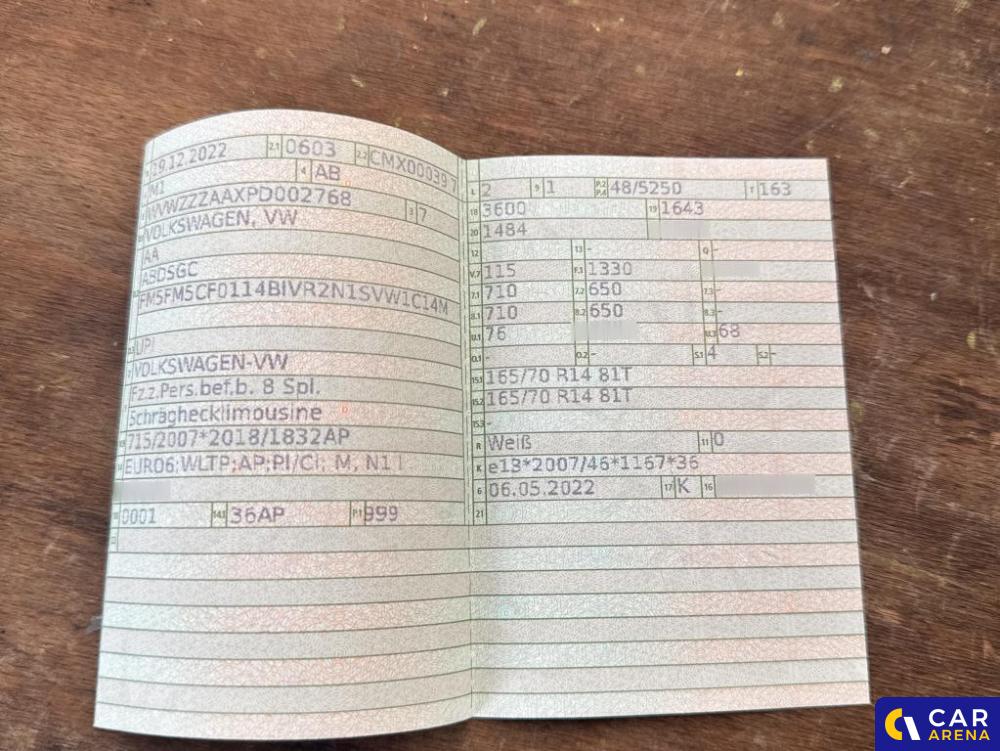 19.12.2022 2.1 0603 2.2 CMX00039 7
M1 4 AB
WVWZZZAAXPD002768 3 7
VOLKSWAGEN, VW
AA
ABDSGC
FM5FM5CF0114BIVR2N1SVW1C14M
UP!
VOLKSWAGEN-VW
Fz.z.Pers.bef.b. 8 Spl.
Schräghecklimousine
715/2007*2018/1832AP
EURO6;WLTP;AP;PI/CI; M, N1 I
10 0001 14.1 36AP P.1 999
22
L 2 9 1 P.2 P.4 48/5250 T 163
18 3600 19 1643
20 1484
12 13 - Q -
V.7 115 F.1 1330
7.1 710 7.2 650 7.3 -
8.1 710 8.2 650 8.3 -
U.1 76 U.3 68
O.1 - O.2 - S.1 4 S.2 -
15.1 165/70 R14 81T
15.2 165/70 R14 81T
15.3 -
R Weiß 11 0
K e13*2007/46*1167*36
6 06.05.2022 17 K 16
21
CAR
ARENA